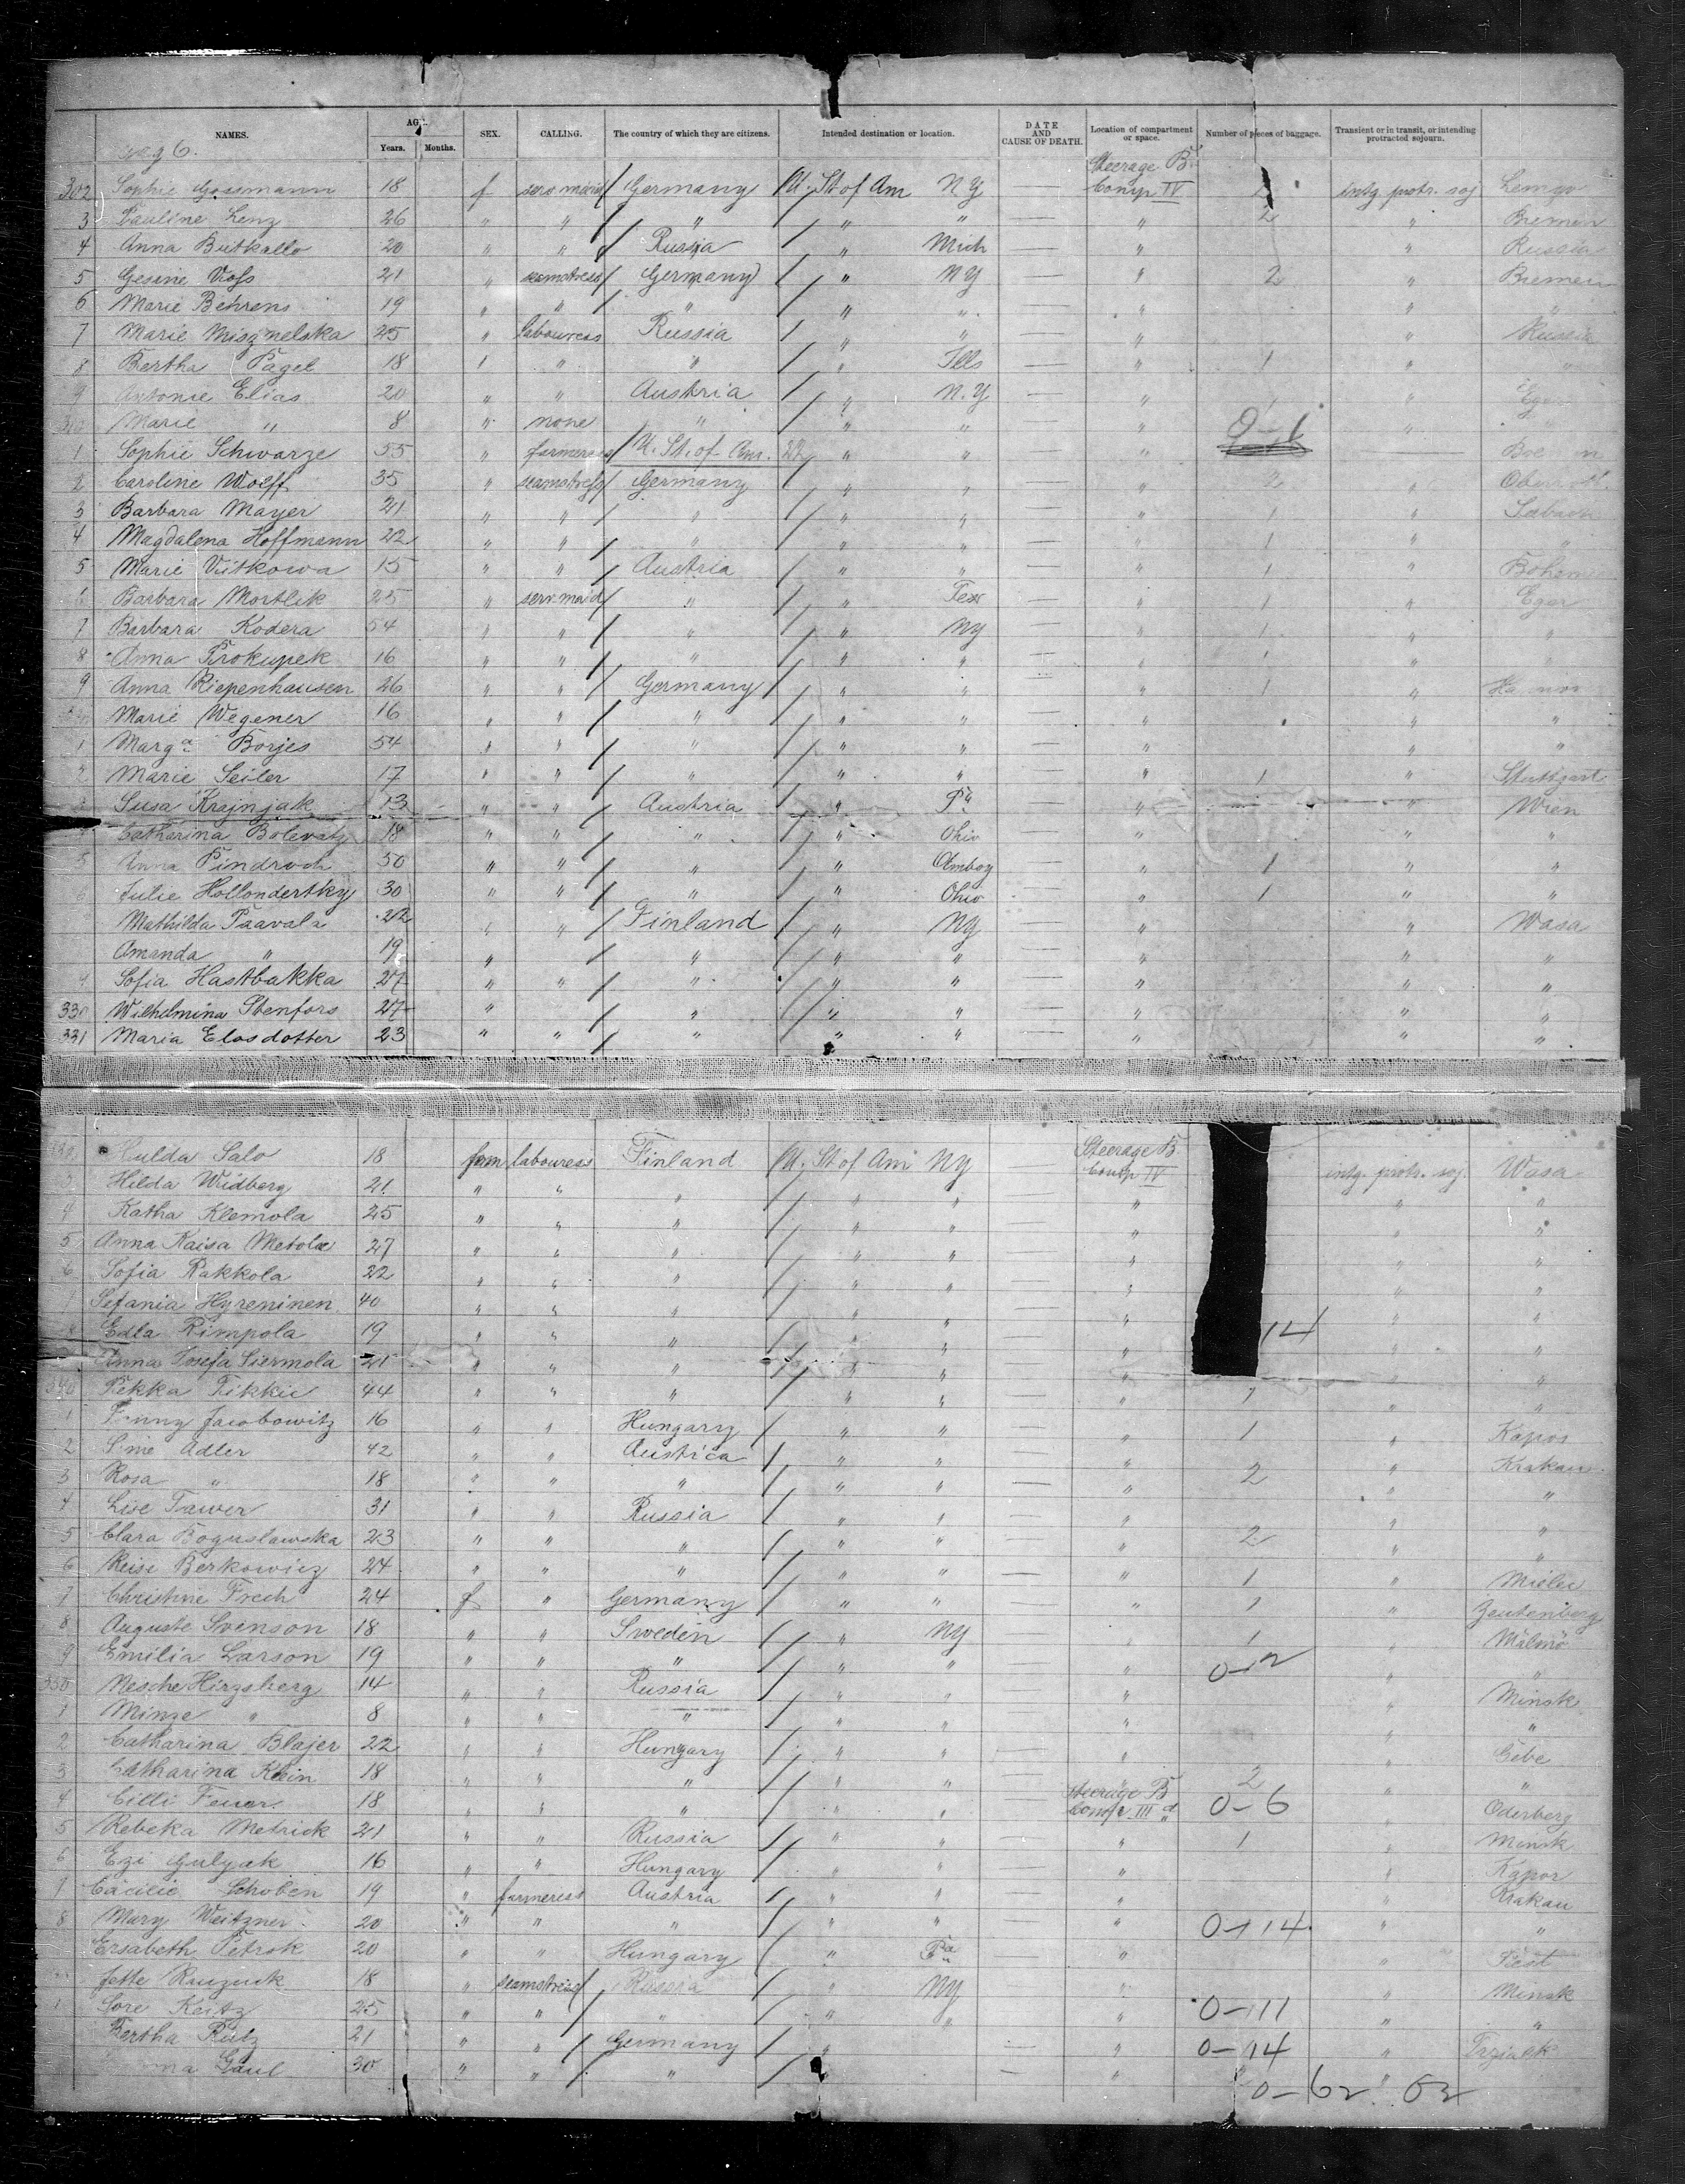 NAMES. AGE. Years. Months. SEX. CALLING. The country of which they are citizens. Intended destination or location. DATE AND CAUSE OF DEATH. Location of compartment or space. Number of pieces of baggage. Transient or in transit, or intending protracted sojourn.
Steerage B
302 Sophie Gossmann 18 f serv. maid Germany U. St of Am N Y — Comp IV intg. protr. soj Lemgo
3 Pauline Lenz 26 " " " " " — " 2 " Bremen
4 Anna Butkallo 20 " " Russia " Mich — " " Russia
5 Gesine Voss 21 " seamstress Germany " N Y — " 2 " Bremen
6 Marie Behrens 19 " " " " " — " " "
7 Marie 25 " labouress Russia " " — " " Russia
8 Bertha Pagel 18 " " " " Ills — " 1 " "
9 Antonie Elias 20 " " Austria " N. Y — " " Eger
Marie " 8 " none " " " — " 0-1 "
1 Sophie Schwarze 55 " farmeress U. St. of Am. 22 " " — "
2 Caroline Wolff 35 " seamstress Germany " " — " 2 "
3 Barbara Mayer 21 " " " " " — " 1 "
4 Magdalena Hoffmann 22 " " " " " — " 1 " "
5 Marie Vitkowa 15 " " Austria " " — " 1 " Bohemia
6 Barbara Mortlik 25 " serv. maid " " Tex — " 1 " Eger
7 Barbara Kodera 54 " " " " NY — " 1 " "
8 Anna Prokupek 16 " " " " " — " 1 " "
9 Anna Riepenhausen 26 " " Germany " " — " 1 "
Marie Wegener 16 " " " " " — " " "
1 Marga Borjes 54 " " " " " — " " "
2 Marie Seiler 17 " " " " " — " 1 " Stuttgart
3 Susa Krajnjak 13 " " Austria " Pa — " " Wien
Catharina Bolevatz 18 " " " " Ohio — " " "
5 Anna Pindroch 50 " " " " Amboy — " 1 " "
6 Julie Hollondertky 30 " " " " Ohio — " 1 " "
Mathilda Paavala 22 " " Finland " NY — " " Wasa
Amanda " 19 " " " " — " " "
9 Sofia Hastbakka 27 " " " " " — " " "
330 Wilhelmina Stenfors 27 " " " " — " " "
331 Maria Elosdotter 23 " " " " " — " " "
Steerage B
Hulda Salo 18 fem labouress Finland U. St of Am NY — Comp IV intg. protr. soj. Wasa
3 Hilda Widberg 21 " " " " " — " " "
4 Katha Klemola 25 " " " " " — " " "
5 Anna Kaisa Metola 27 " " " " " — " " "
6 Sofia Rakkola 22 " " " " " — " " "
Sefania Hyreninen 40 " " " " " — " " "
Edla Rimpola 19 " " " " " — " 14 " "
Anna Josefa Siermola 21 " " " " " — " " "
340 Pekka Tikkie 44 " " " " " — " 1 " "
1 Fanny Jacobowitz 16 " " Hungary " " — " 1 " Kapos
2 Adler 42 " " Austria " " — " " Krakau
3 Rosa " 18 " " " " " — " 2 " "
4 Lise Tawer 31 " " Russia " " — " " "
5 Clara Boguslawska 23 " " " " " — " 2 " "
6 Reise Berkowicz 24 " " " " " — " 1 " Mielec
7 Christine Frech 24 f " Germany " " — " 1 "
8 Auguste Svenson 18 " " Sweden " NY — " 1 " Malmö
9 Emilia Larson 19 " " " " " — " 0-2 " "
350 Mesche Hirzsberg 14 " " Russia " " — " " Minsk
1 Minze " 8 " " " " " — " " "
2 Catharina Blajer 22 " " Hungary " " — " "
3 Catharina Klein 18 " " " " " — 2 " "
Steerage B
4 Cilli Feuer 18 " " " " " — Comp. III 0-6 " Oderberg
5 Rebeka Metrick 21 " " Russia " " — " 1 " Minsk
6 Ezi Gulyak 16 " " Hungary " " — " " Kapor
7 Cäcilie Schoben 19 " farmeress Austria " " — " " Krakau
8 Mary Weitzner 20 " " " " " — " 0-114 " "
Ersabeth Petrok 20 " " Hungary " Pa — " " Pest
Jette Ruzuck 18 " seamstress Russia " NY — " " Minsk
1 Sore Keitz 25 " " " " " " 0-111 " "
Bertha Rutz 21 " " Germany " — " 0-14 "
Gaul 30 " " " " — " "
0-62